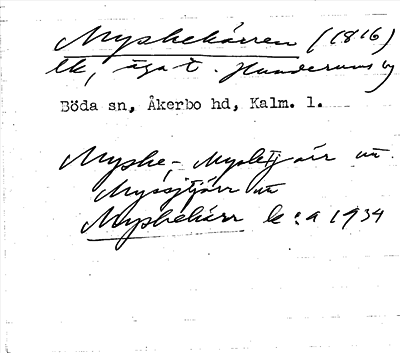 Myskekärren (1816)
lk, äga t. Hunderums by
Böda sn, Åkerbo hd, Kalm. l.
Myske-, Myskjärr un.
Myssjtjärr un
Myskekärr le : a 1934